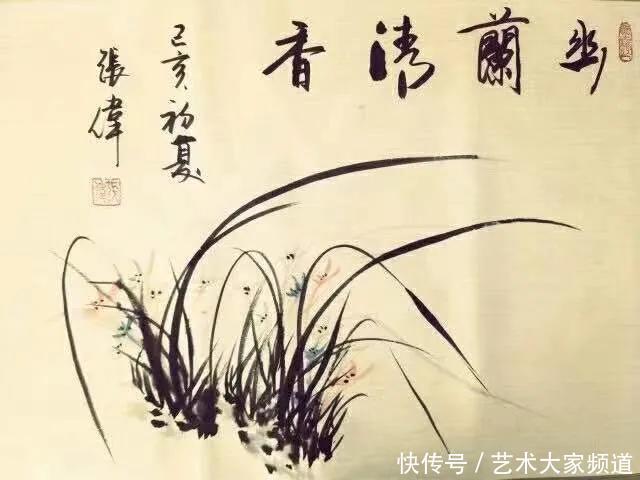 幽蘭清香
己亥初夏
張偉
快传号/艺术大家频道